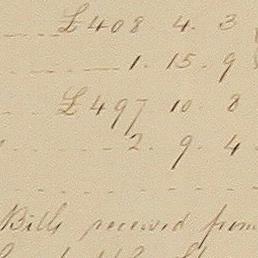 £408 4. 3
1. 15. 9
£497 10. 8
2. 9. 4
Bills received from